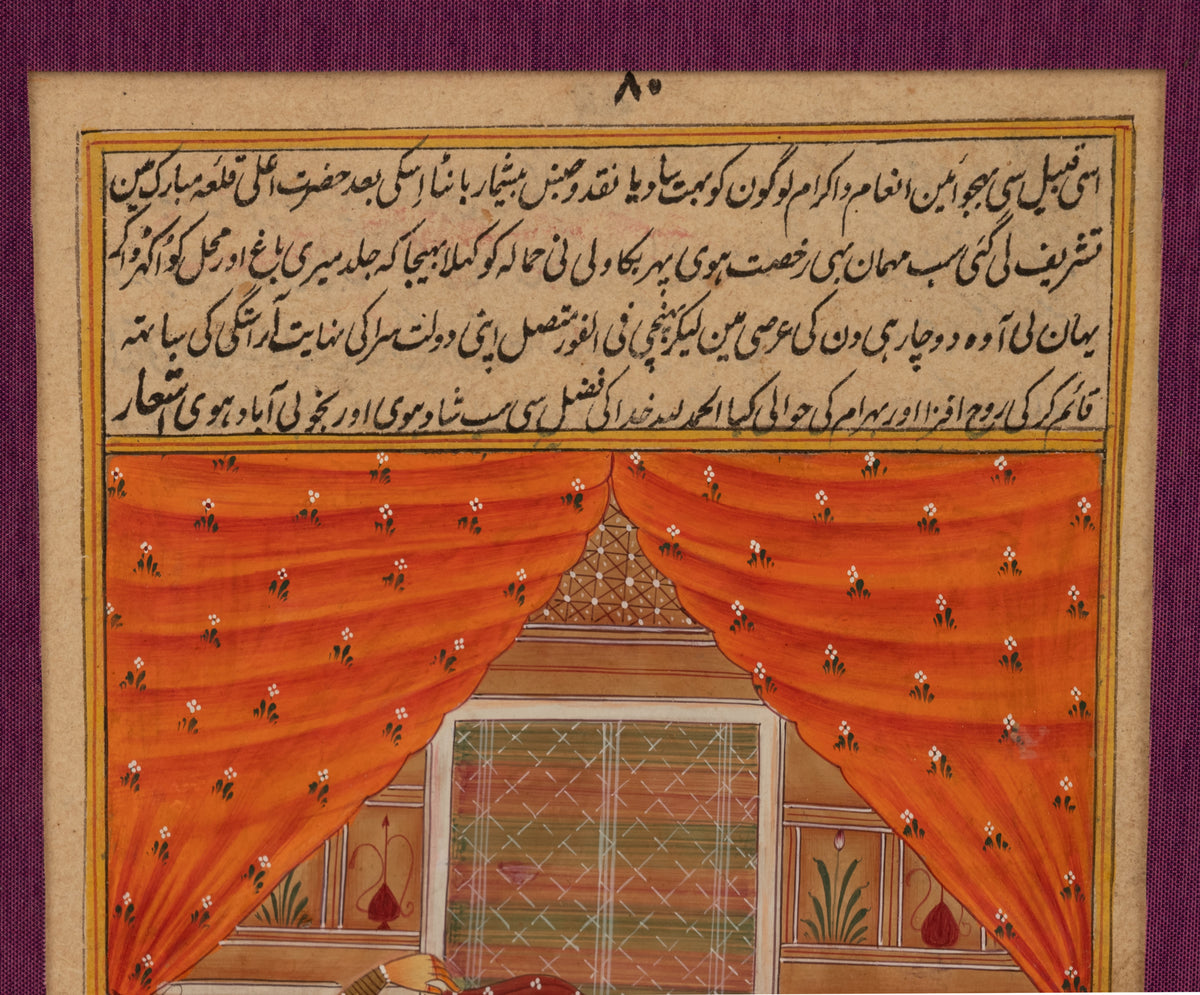 ۸۰
اسی قبیل سی بہجوائین انعام و اکرام لوگون کو بہت سا دیا نقد و جنس بیشمار بانٹا اسکی بعد حضرت اعلی قلعہ مبارک مین
تشریف لی گئی سب مہمان بہی رخصت ہوی پہر بکاولی نی حمالہ کو کہلا بہیجا کہ جلد میری باغ اور محل کو اکہڑوا کر
یہان لی آوہ دو چار ہی دن کی عرصی مین لیکر پہنچی فی الفور متصل اپنی دولت سرا کی نہایت آراستگی کی ساتہہ
قائم کر کی روح افزا اور بہرام کی حوالی کیا الحمد للہ خدا کی فضل سی سب شاد ہوی اور بخوبی آباد ہوی اشعار